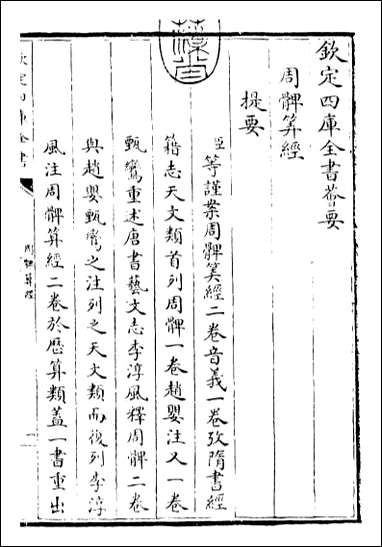 欽定四庫全書薈要
周髀筭經
提要
臣等謹案周髀筭經二卷音義一卷攷隋書經
籍志天文類首列周髀一卷趙嬰注又一卷
甄鸞重述唐書藝文志李淳風釋周髀二卷
與趙嬰甄鸞之注列之天文類而復列李淳
風注周髀筭經二卷於厯算類蓋一書重出
欽定四庫全書
周髀筭經
一